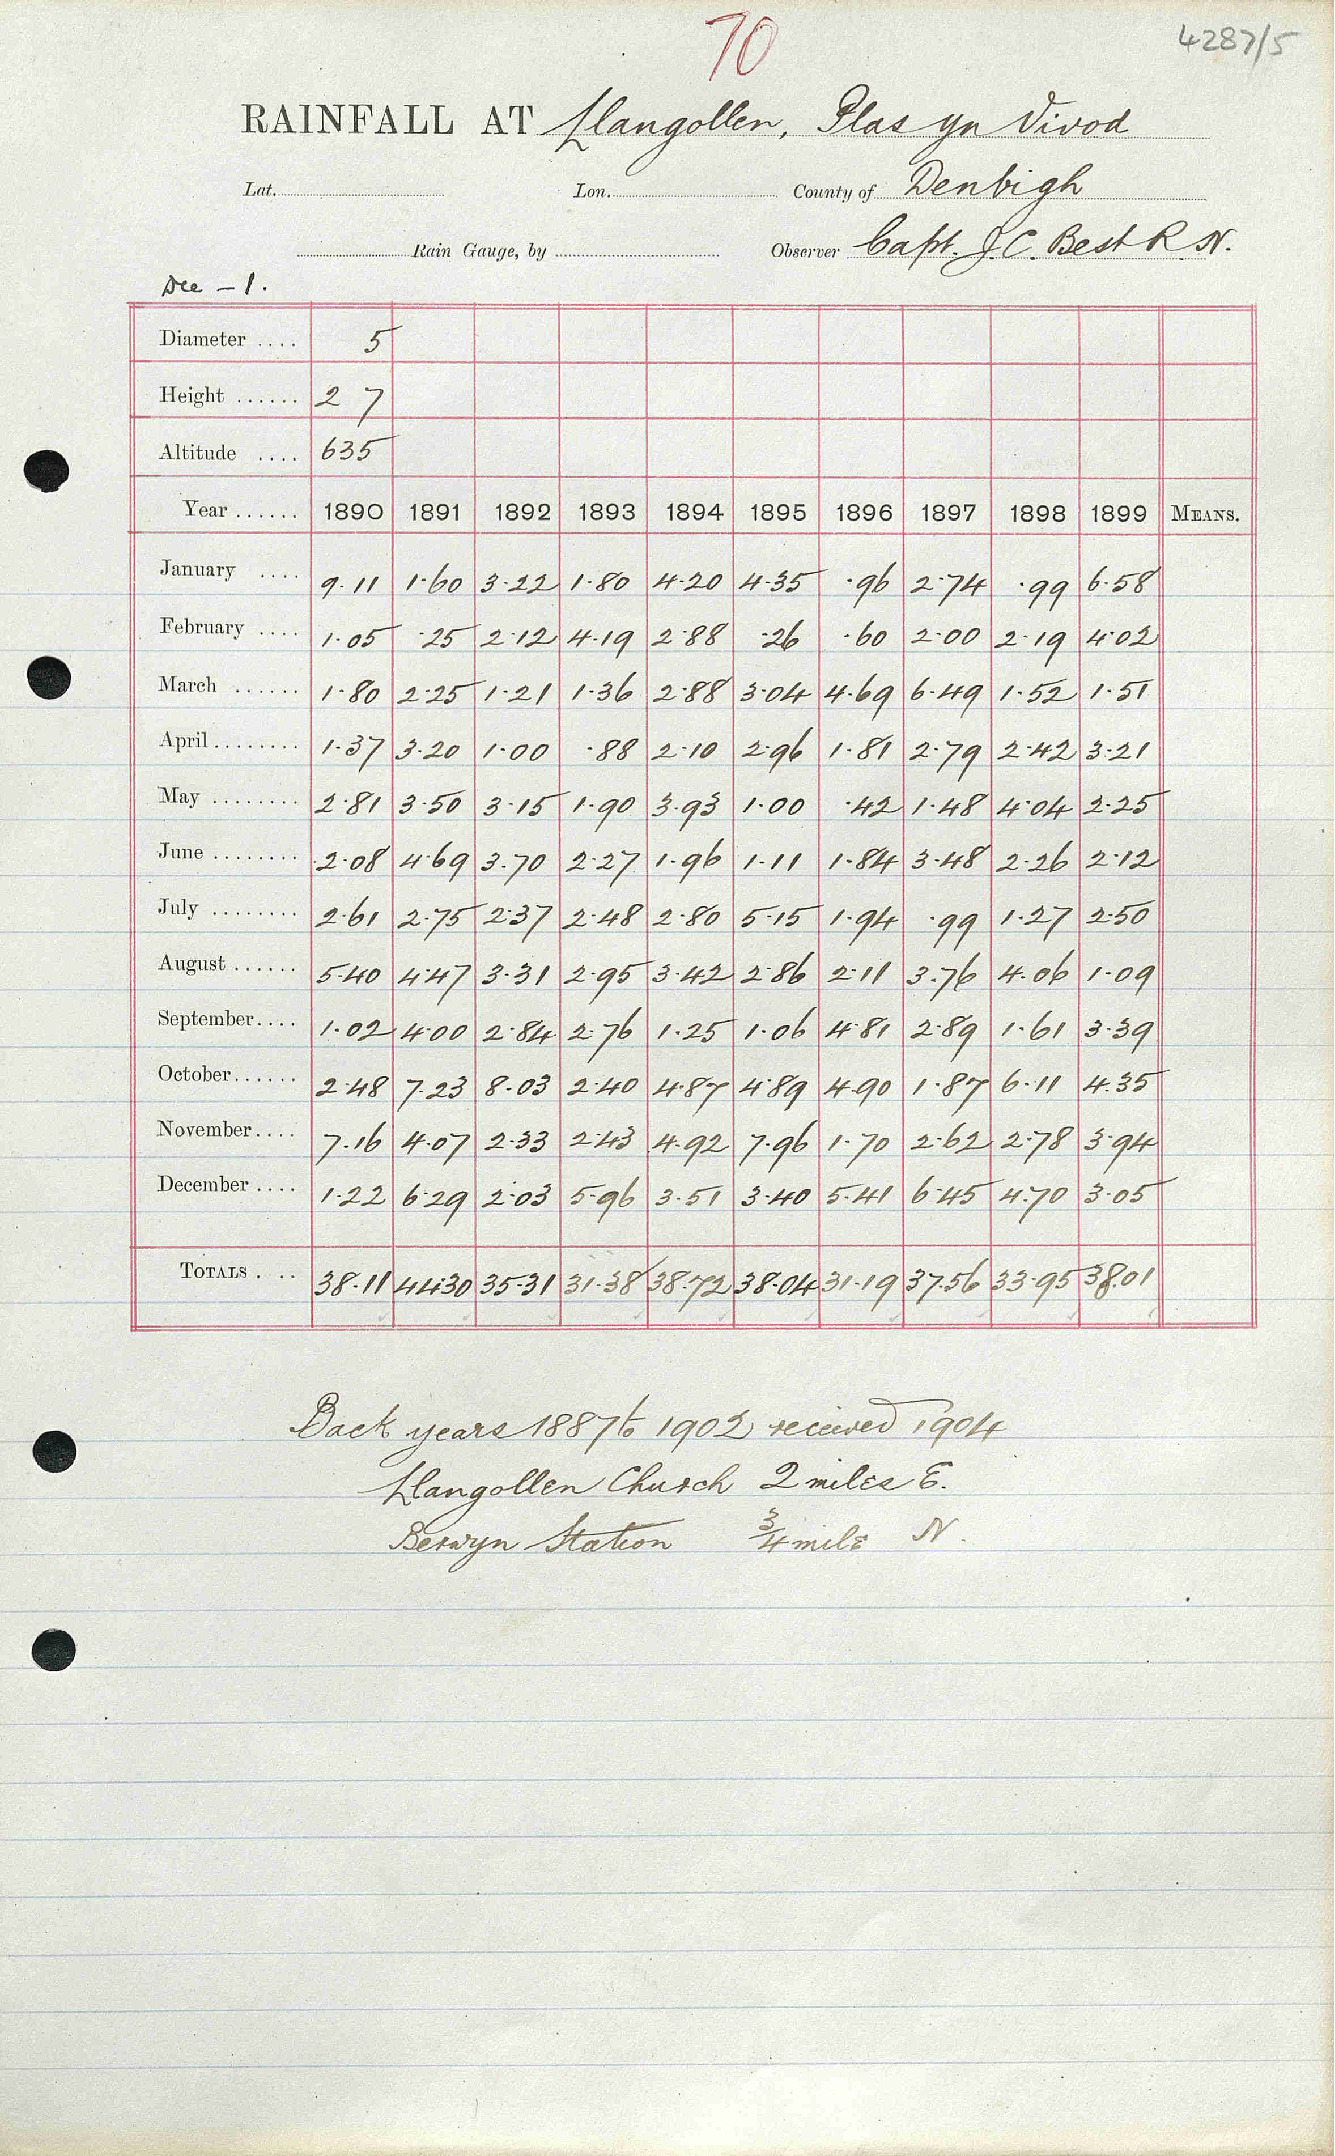 70
4287/5
RAINFALL AT Llangollen, Plas yn Vivod
Lat. Lon. County of Denbigh
Rain Gauge, by Observer Capt. J C. Best R N.
Dee - 1.
Diameter .... 5
Height ...... 2 7
Altitude .... 635
Year ...... 1890 1891 1892 1893 1894 1895 1896 1897 1898 1899 MEANS.
January .... 9.11 1.60 3.22 1.80 4.20 4.35 .96 2.74 .99 6.58
February .... 1.05 .25 2.12 4.19 2.88 .26 .60 2.00 2.19 4.02
March ...... 1.80 2.25 1.21 1.36 2.88 3.04 4.69 6.49 1.52 1.51
April ........ 1.37 3.20 1.00 .88 2.10 2.96 1.81 2.79 2.42 3.21
May ........ 2.81 3.50 3.15 1.90 3.93 1.00 .42 1.48 4.04 2.25
June ........ 2.08 4.69 3.70 2.27 1.96 1.11 1.84 3.48 2.26 2.12
July ........ 2.61 2.75 2.37 2.48 2.80 5.15 1.94 .99 1.27 2.50
August ...... 5.40 4.47 3.31 2.95 3.42 2.86 2.11 3.76 4.06 1.09
September.... 1.02 4.00 2.84 2.76 1.25 1.06 4.81 2.89 1.61 3.39
October...... 2.48 7.23 8.03 2.40 4.87 4.89 4.90 1.87 6.11 4.35
November.... 7.16 4.07 2.33 2.43 4.92 7.96 1.70 2.62 2.78 3.94
December .... 1.22 6.29 2.03 5.96 3.51 3.40 5.41 6.45 4.70 3.05
TOTALS . .. 38.11 44.30 35.31 31.38 38.72 38.04 31.19 37.56 33.95 38.01
Back years 1887 to 1902 received 1904
Llangollen Church 2 miles E.
Berwyn Station 3/4 mile N.